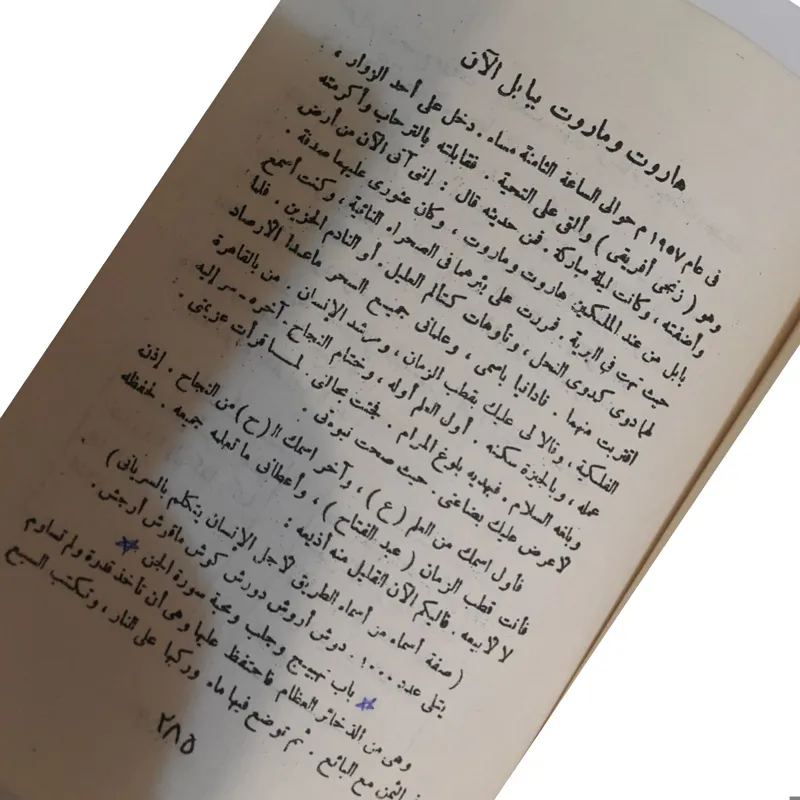 هاروت وماروت ببابل الآن
فى عام ١٩٥٧ م حوالى الساعة الثامنة مساء . دخل على أحد الزوار ،
وهو ( زنجى أفريقى ) وألقى على التحية . فقابلته بالترحاب وأكرمته
وأضفته ، وكانت ليلة مباركة . فمن حديثه قال : إنى آتى الآن من أرض
بابل من عند الملكين هاروت وماروت ، وكان عثورى عليهما صدفة .
حيث تهت فى البرية . فمررت على بئرهما فى الصحراء النائية ، وكنت أسمع
لهما دوى كدوى النحل ، وتأوهات كتألم العليل . أو النادم الحزين . فلما
اقتربت منهما . نادانيا باسمى ، وعلمانى جميع السحر ماعدا الأرصاد
الفلكية ، وقالا لى عليك بقطب الزمان ، ومرشد الإنسان . من بالقاهرة
عمله ، وبالجيزة سكنه . أول العلم أوله ، وختام النجاح . آخره ـ سر إليه
وبلغه السلام . فيهديه بلوغ المرام . فجئت بحالى لمسا قرأت عزيمتى :
لأعرض عليك بضاعتى . حيث صحت نبوءتى .
فأول اسمك من العلم ( ع ) ، وآخر اسمك الـ ( ح ) من النجاح . إذن
فأنت قطب الزمان ( عبد الفتاح ) ، وأعطانى ما تعلمه جميعه . لحفظه
لا لأبيعه . فاليكم الآن القليل منه أذيعه :
( صفة أسماء من أسماء الطريق لأجل الإنسان يتكلم بالسريانى )
يتلى عدد ١٠٠٠ . دوش أروش دورش كوش ماقوش أرجش .
باب تهييج وجلب ومحبة سورة الجن
وهى من الذخائر العظام فاحتفظ عليها وهى أن تأخذ قدرة ولم تساوم
فى الثمن مع البائع . ثم توضع فيها ماء وركبها على النار ، وتكتب السبع
٢٨٥